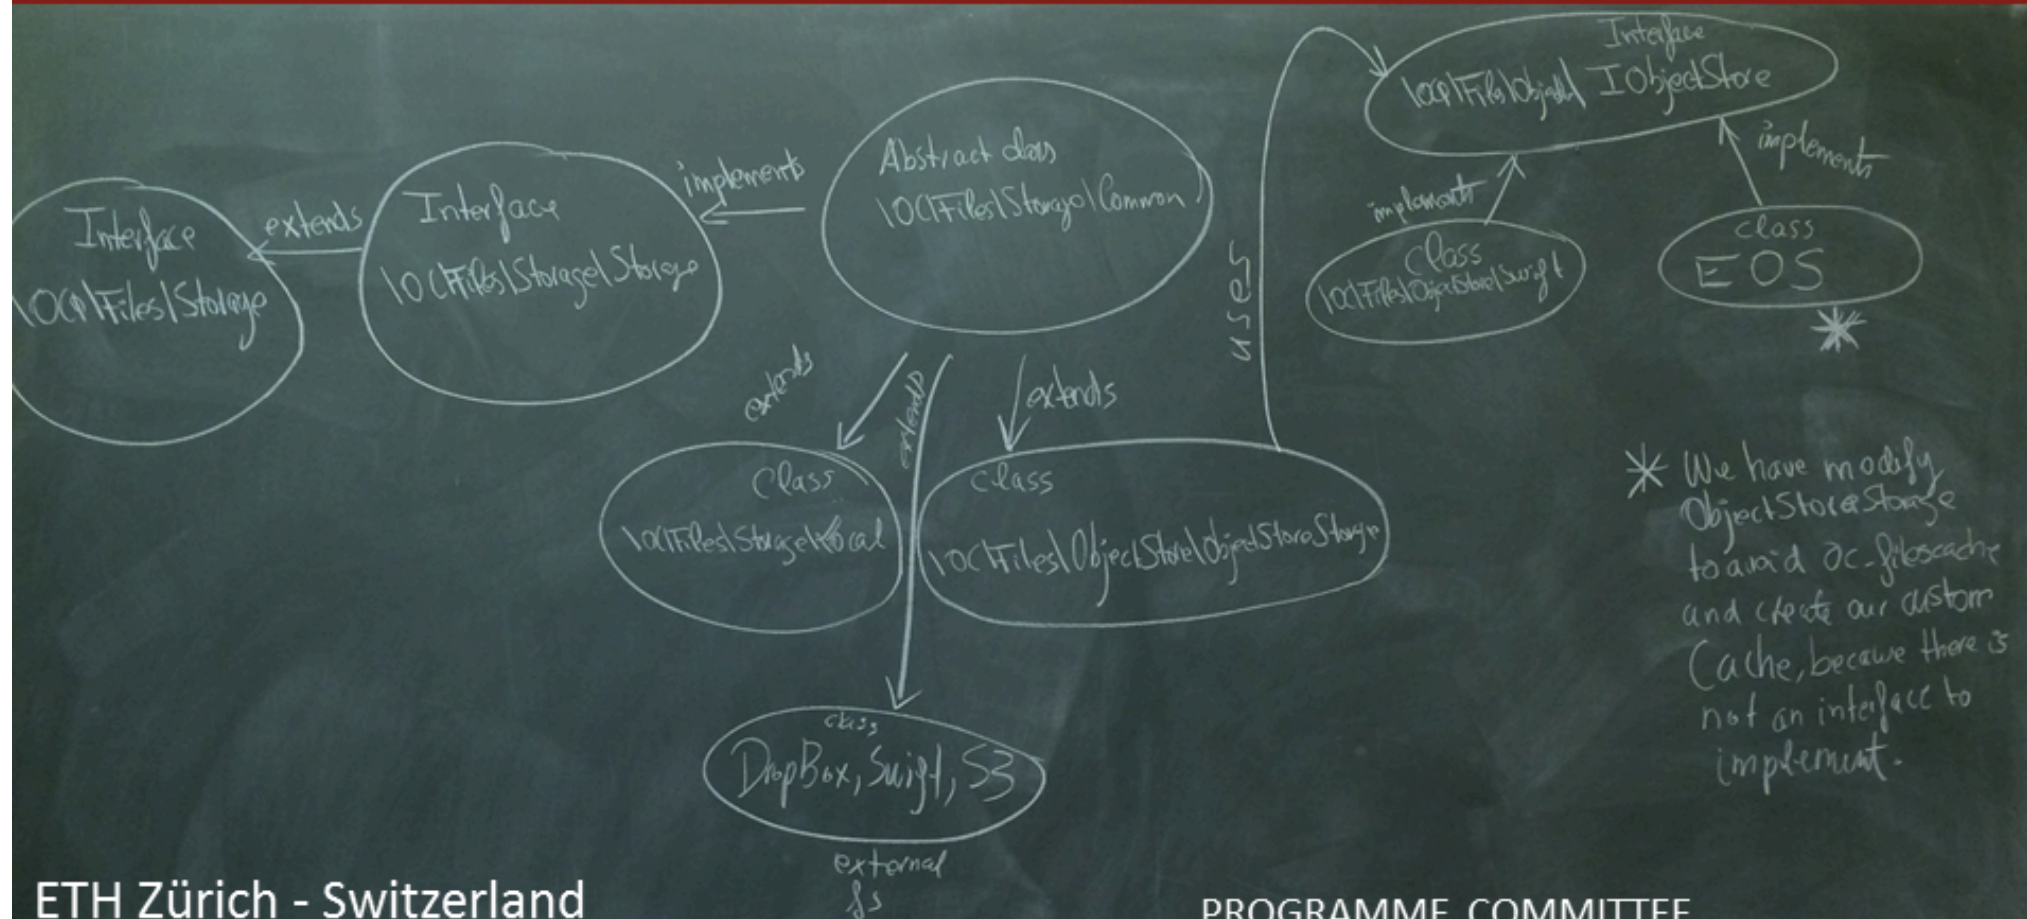 Interface
\OCP\Files\Storage
extends
Interface
\OC\Files\Storage\Storage
implements
Abstract class
\OC\Files\Storage\Common
extends
extends
extends
class
\OC\Files\Storage\Local
class
\OC\Files\ObjectStore\ObjectStoreStorage
class
DropBox, Swift, S3
external
fs
uses
Interface
IObjectStore
implements
implements
class
\OC\Files\ObjectStore\Swift
class
EOS
*
* We have modify
ObjectStoreStorage
to avoid oc_filescache
and create our custom
Cache, because there is
not an interface to
implement.
ETH Zürich - Switzerland
PROGRAMME COMMITTEE